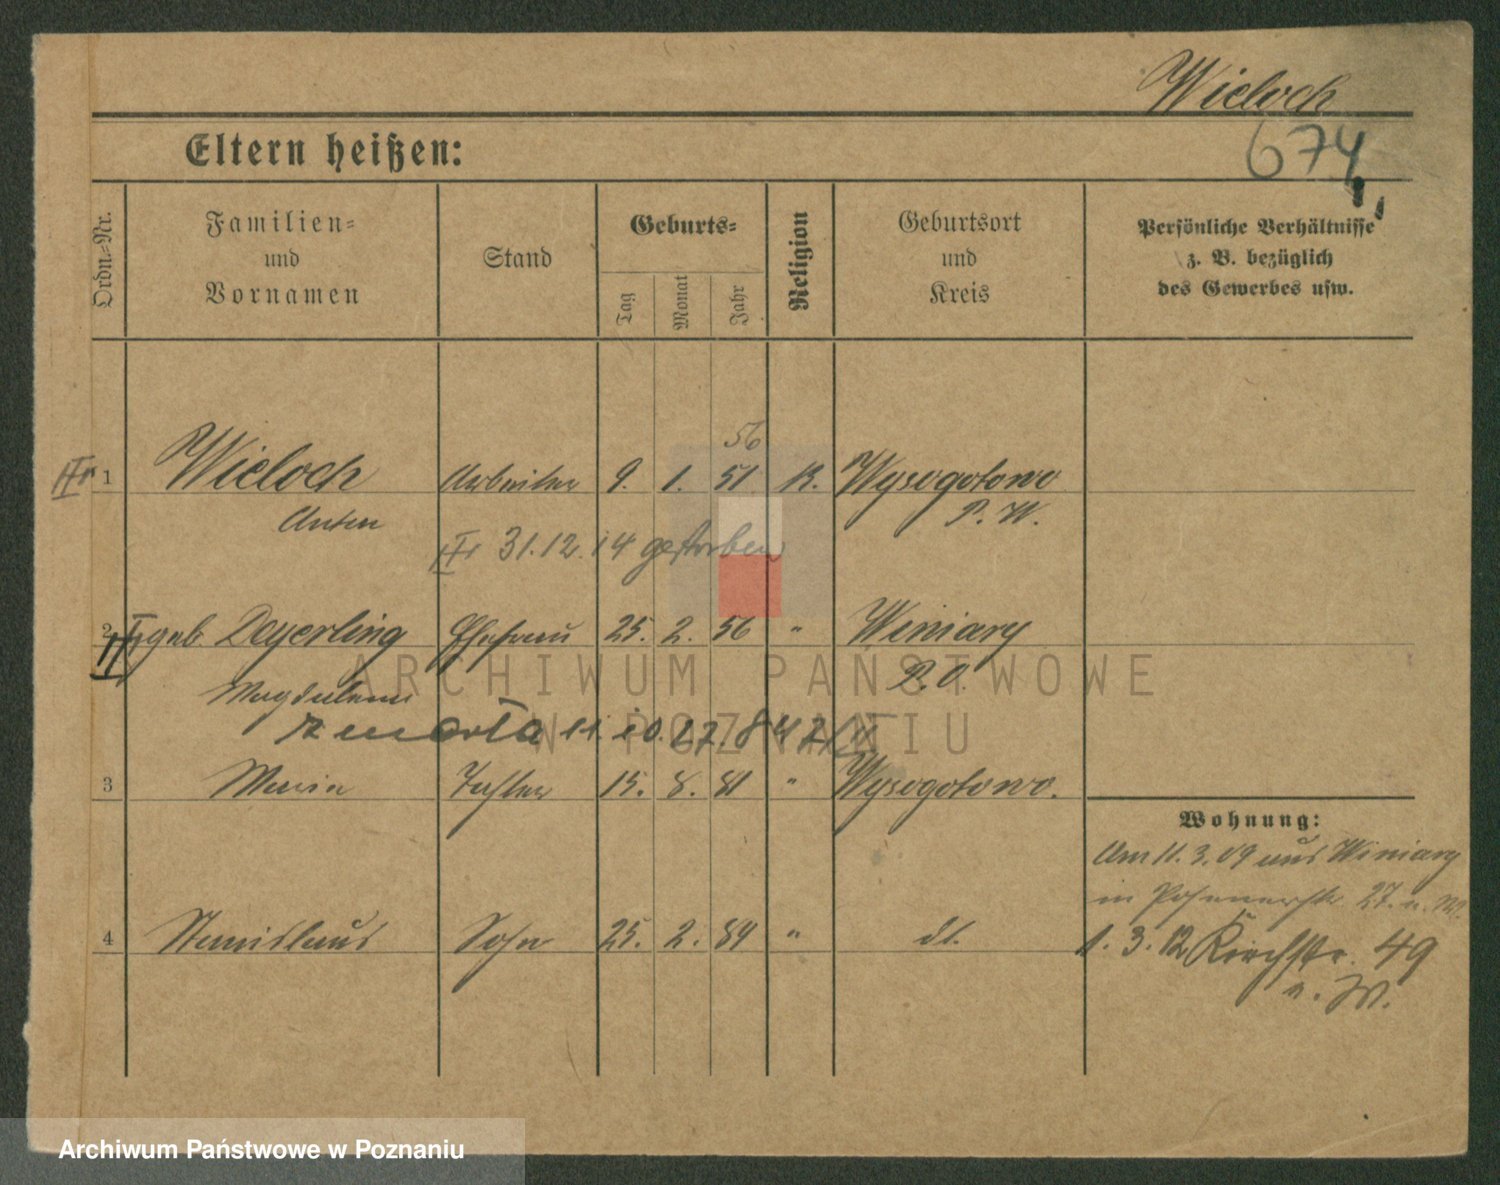 Wieloch
674
Eltern heißen:
Ordn.-Nr.
Familien-
und
Vornamen
Stand
Geburts-
Tag
Monat
Jahr
Religion
Geburtsort
und
Kreis
Persönliche Verhältnisse
z. B. bezüglich
des Gewerbes usw.
56
1 Wieloch Arbeiter 9. 1. 51 K. Wysogotowo
Anton P. W.
31.12.14 gestorben
2 geb. Deyerling Ehefrau 25. 2. 56 " Winiary
Magdalena P. O.
zmarła 11. 10.
3 Maria Tochter 15. 8. 81 " Wysogotowo.
Wohnung:
Am 11. 3. 09 aus Winiary
in Posenerstr. 27. n. W.
4 Stanislaus Sohn 25. 2. 84 " dt. 1. 3. 12 Kirchstr. 49
n. W.
ARCHIWUM PAŃSTWOWE
W POZNANIU
Archiwum Państwowe w Poznaniu